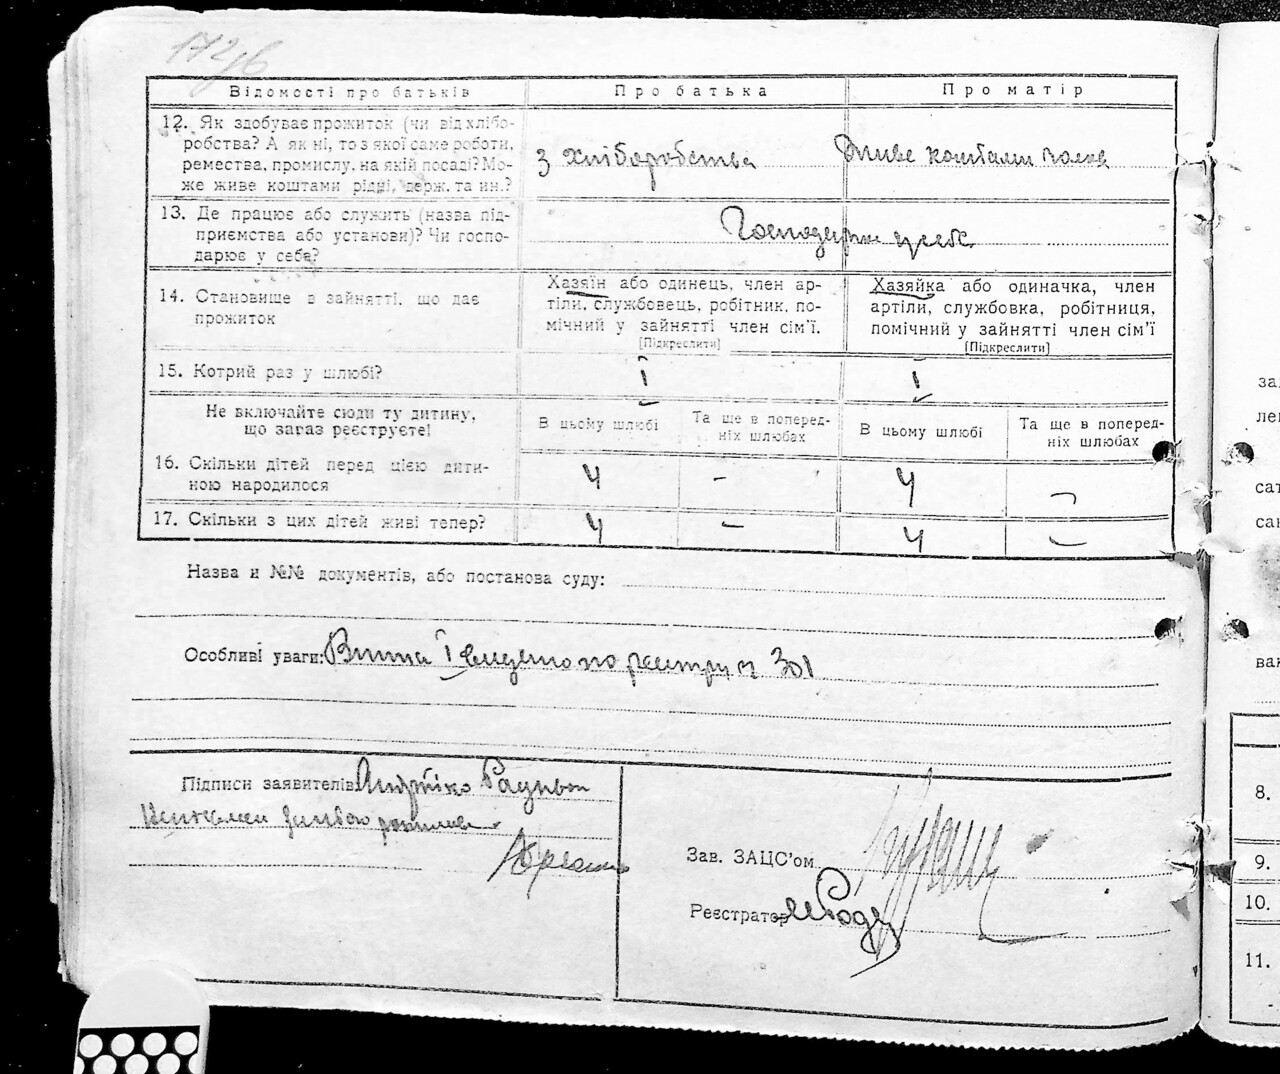 172/6
Відомості про батьків Про батька Про матір
12. Як здобуває прожиток (чи від хлібо-
робства? А як ні, то з якої саме роботи,
ремества, промислу, на якій посаді? Мо-
же живе коштами рідні, держ. та ин.?
з хліборобства Живе коштами
13. Де працює або служить (назва під-
приємства або установи)? Чи госпо-
дарює у себе?
14. Становище в зайнятті, що дає
прожиток
Хазяїн або одинець, член ар-
тіли, службовець, робітник, по-
мічний у зайнятті член сім'ї.
[Підкреслити]
Хазяйка або одиначка, член
артіли, службовка, робітниця,
помічний у зайнятті член сім'ї
[Підкреслити]
15. Котрий раз у шлюбі? І І
Не включайте сюди ту дитину,
що загаз реєструєте!
В цьому шлюбі
Та ще в поперед-
ніх шлюбах
В цьому шлюбі
Та ще в поперед-
ніх шлюбах
16. Скільки дітей перед цією дити-
ною народилося
4 - 4 -
17. Скільки з цих дітей живі тепер? 4 - 4 -
Назва и №№ документів, або постанова суду:
Особливі уваги: по реєстру 301
Підписи заявителів
Зав. ЗАЦС'ом
Реєстратор
за
ле
са
са
ва
8.
9.
10.
11.